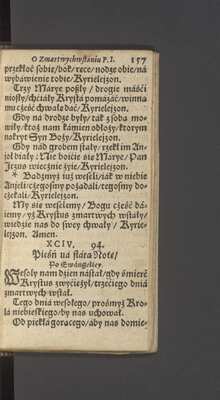 O Zmartwychwstaniu P. J. 157
przekłoć sobie/bok/rece/nodze obie/na
wybawienie tobie/Kyrielejzon.
Trzy Marye poszły/drogie máści
niosły/chciáły Krystá pomázáć/winna
mu cżeść chwałe dáć/Kyrielejzon.
Gdy na drodze były/tak z sobą mo-
wiły/ktoż nam kámien odłoży/ktorym
nakryt Syn Boży/Kyrielejzon.
Gdy nád grobem stáły/rzekł im An-
joł biały: Nie bojcie sie Márye/Pan
Jezus wiecznie żyje/Kyrielejzon.
* Bądźmyż już weseli/iák w niebie
Anjeli/cżegosmy pożądáli/tegosmy do-
cżekáli/Kyrielejzon.
My sie weselmy/Bogu cżeść dá-
jemy/yż Krystus zmartwych wstały/
wiedzie nas do swey chwały/Kyrie-
lejzon. Amen.
XCIV. 94.
Pieśń ná stára Note/
Po Ewángeliey.
Wesoły nam dzien nástał/gdy śmierć
Krystus zwycieżył/trzeciego dniá
zmartwych-wstał.
Tego dniá wesołego/prośmyż Kro-
lá niebieskiego/by nas uchował.
Od piekłá gorącego/áby nas domie-